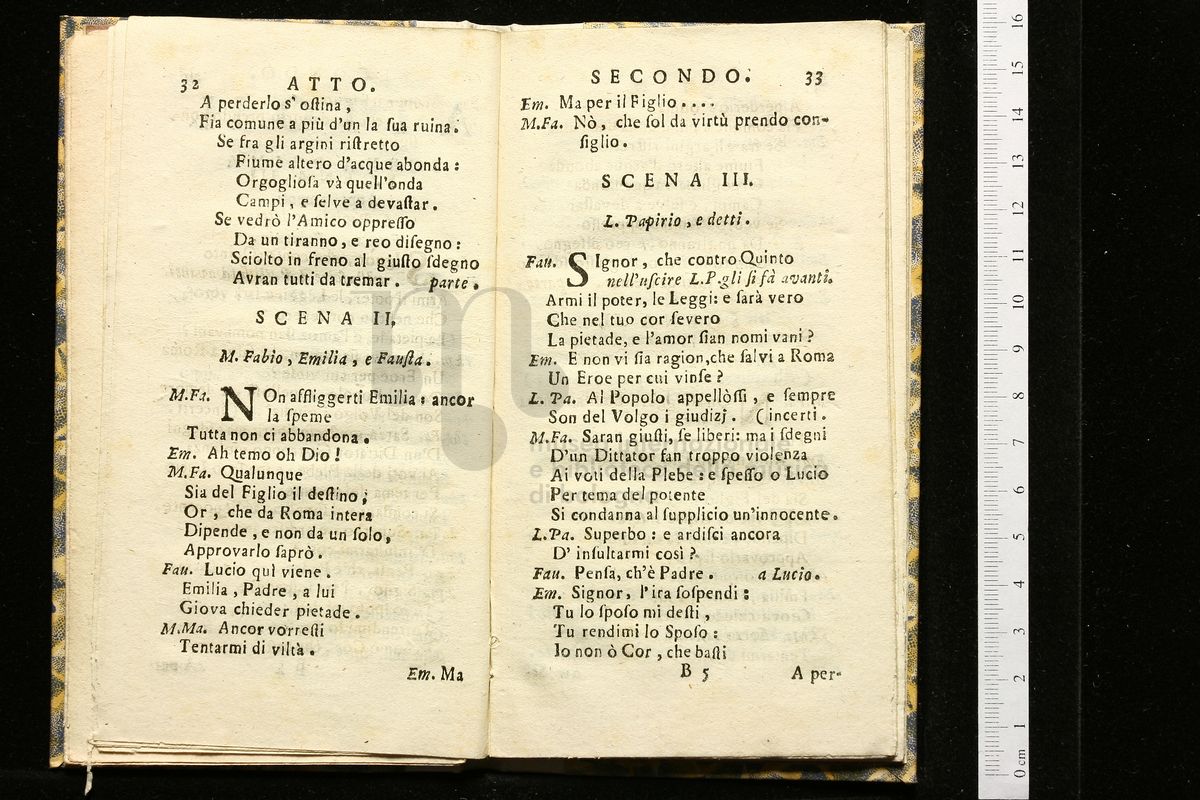 32 ATTO.
A perderlo s' oſtina,
Fia comune a più d'un la ſua ruina.
Se fra gli argini riſtretto
Fiume altero d'acque abonda:
Orgoglioſa và quell'onda
Campi, e ſelve a devaſtar.
Se vedrò l'Amico oppreſſo
Da un tiranno, e reo diſegno:
Sciolto in freno al giuſto ſdegno
Avran tutti da tremar. parte.
SCENA II.
M. Fabio, Emilia, e Fauſta.
M.Fa. NOn affliggerti Emilia: ancor
la ſpeme
Tutta non ci abbandona.
Em. Ah temo oh Dio!
M.Fa. Qualunque
Sia del Figlio il deſtino;
Or, che da Roma intera
Dipende, e non da un ſolo,
Approvarlo ſaprò.
Fau. Lucio quì viene.
Emilia, Padre, a lui
Giova chieder pietade.
M.Ma. Ancor vorreſti
Tentarmi di viltà.
Em. Ma
SECONDO. 33
Em. Ma per il Figlio....
M.Fa. Nò, che ſol da virtù prendo con-
ſiglio.
SCENA III.
L. Papirio, e detti.
Fau. SIgnor, che contro Quinto
nell'uſcire L.P. gli ſi fà avanti.
Armi il poter, le Leggi: e ſarà vero
Che nel tuo cor ſevero
La pietade, e l'amor ſian nomi vani?
Em. E non vi ſia ragion, che ſalvi a Roma
Un Eroe per cui vinſe?
L. Pa. Al Popolo appellòſſi, e ſempre
Son del Volgo i giudizj. (incerti.
M.Fa. Saran giuſti, ſe liberi: ma i ſdegni
D'un Dittator fan troppo violenza
Ai voti della Plebe: e ſpeſſo o Lucio
Per tema del potente
Si condanna al ſupplicio un'innocente.
L.Pa. Superbo: e ardiſci ancora
D' inſultarmi così?
Fau. Penſa, ch'è Padre. a Lucio.
Em. Signor, l'ira ſoſpendi:
Tu lo ſpoſo mi deſti,
Tu rendimi lo Spoſo:
Io non ò Cor, che baſti
B 5 A per-
0 cm 1 2 3 4 5 6 7 8 9 10 11 12 13 14 15 16